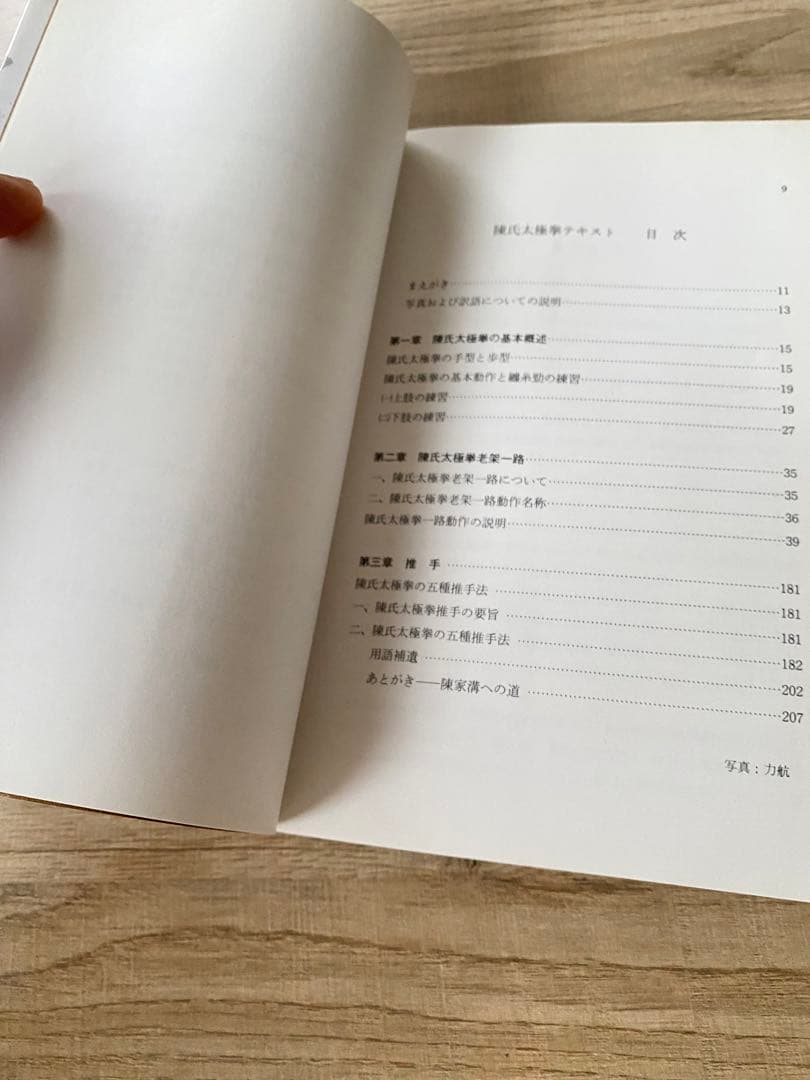 9
陳氏太極拳テキスト 目次
まえがき……11
写真および訳語についての説明……13
第一章 陳氏太極拳の基本概述……15
陳氏太極拳の手型と歩型……15
陳氏太極拳の基本動作と纏糸勁の練習……19
㈠上肢の練習……19
㈡下肢の練習……27
第二章 陳氏太極拳老架一路……35
一、陳氏太極拳老架一路について……35
二、陳氏太極拳老架一路動作名称……36
陳氏太極拳一路動作の説明……39
第三章 推手……181
陳氏太極拳の五種推手法……181
一、陳氏太極拳推手の要旨……181
二、陳氏太極拳の五種推手法……182
用語補遺……202
あとがき——陳家溝への道……207
写真：力航